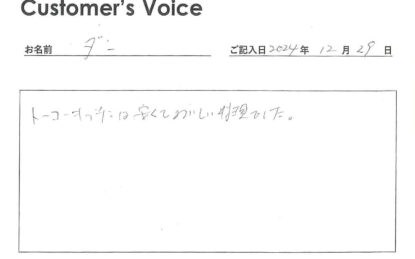 Customer's Voice
お名前 ダニー ご記入日 2024年 12月 29日
は安くておいしい料理でした。